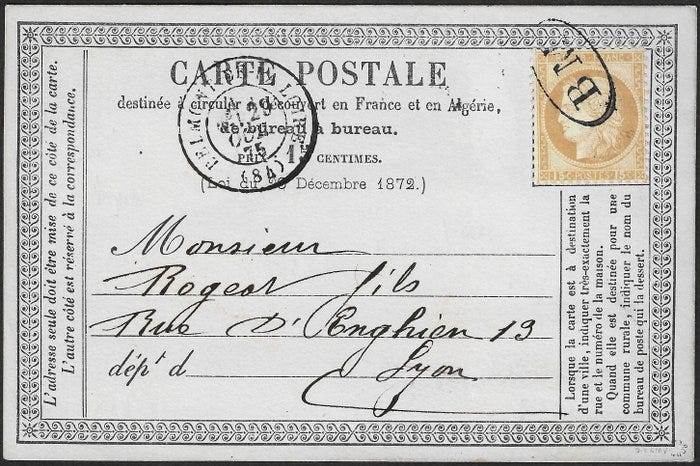 CARTE POSTALE
destinée à circuler à découvert en France et en Algérie,
de bureau à bureau.
PRIX 15 CENTIMES.
(Loi du 20 Décembre 1872.)
29
OCT
75
(84)
BM
15 C POSTES 15 C
Monsieur
Rogeat fils
Rue D'Enghien 13
dépt d Lyon
L'adresse seule doit être mise de ce côte de la carte.
L'autre côté est réservé à la correspondance.
Lorsque la carte est à destination
d'une ville, indiquer très-exactement la
rue et le numéro de la maison.
Quand elle est destinée pour une
commune rurale, indiquer le nom du
bureau de poste qui la dessert.